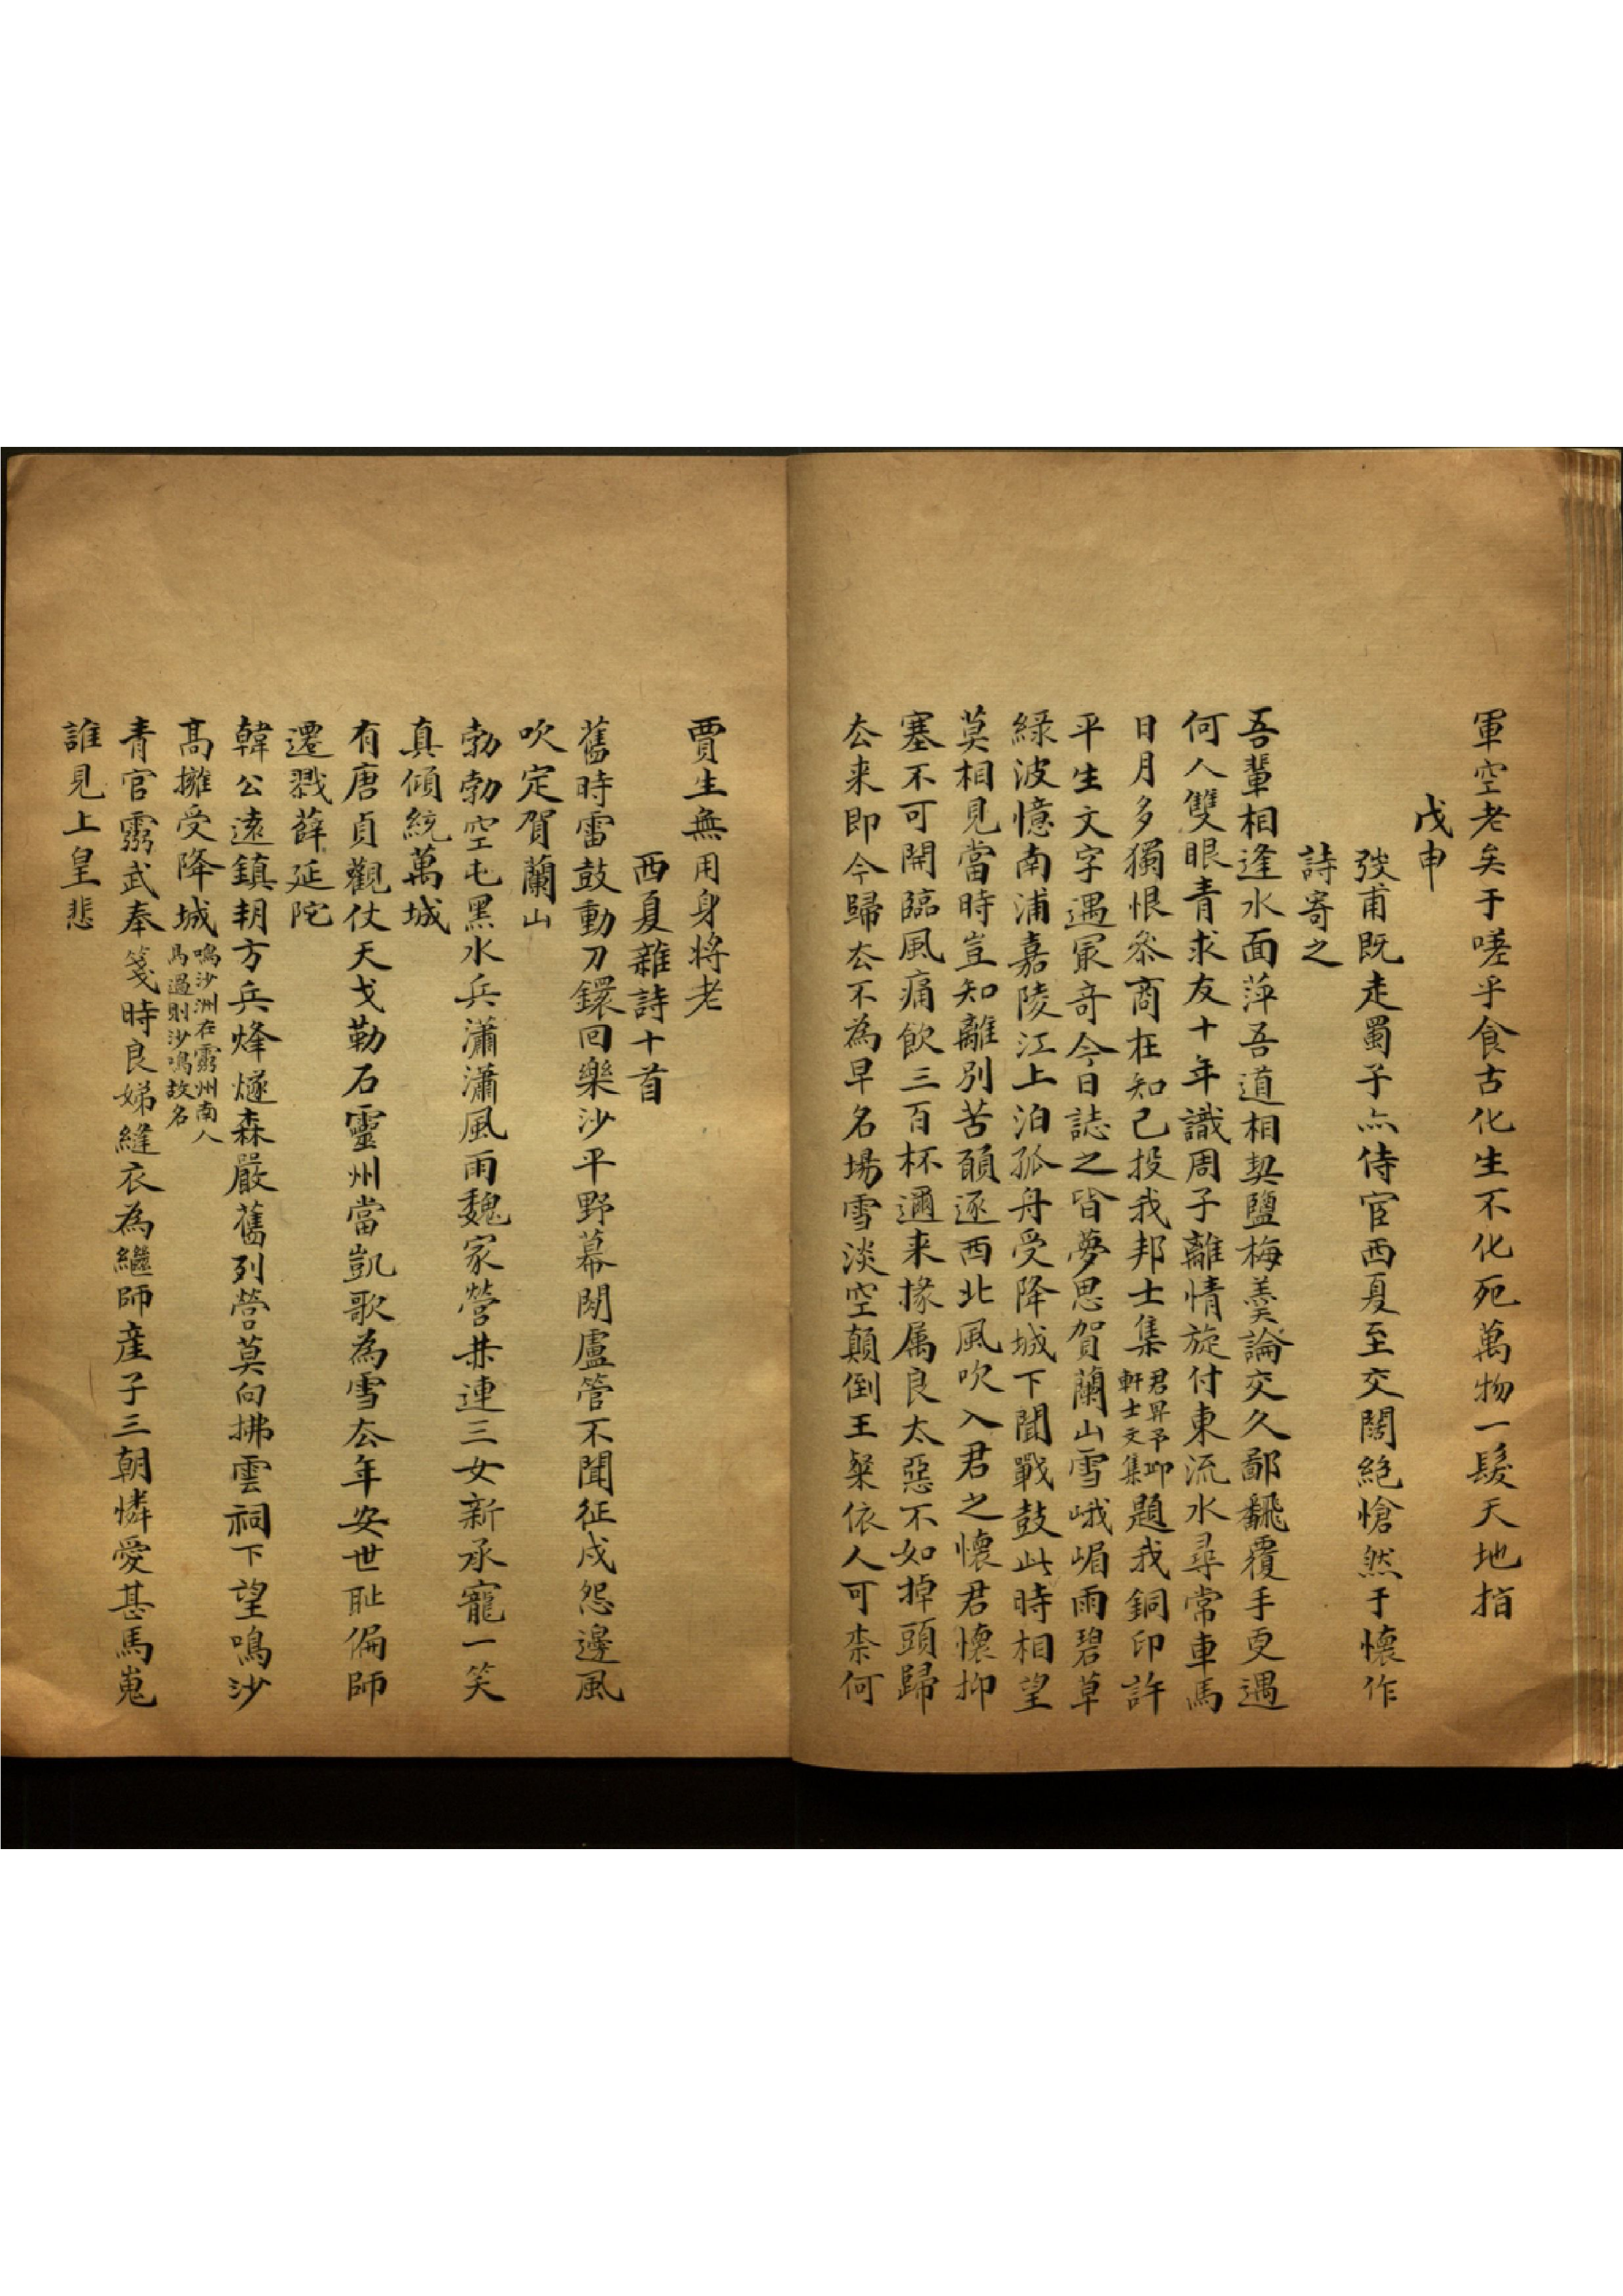 軍空老矣于嗟乎食古化生不化死萬物一髮天地指
戊申
弢甫既走蜀子亦侍宦西夏至交闊絕愴然于懷作
詩寄之
吾輩相逢水面萍吾道相契鹽梅羹論交久鄙飜覆手更遇
何人雙眼青求友十年識周子離情旋付東流水尋常車馬
日月多獨恨叅商在知己投我邦士集
君昇予卬
軒士文集
題我銅印許
平生文字遇冣奇今日誌之皆夢思賀蘭山雪峨嵋雨碧草
綠波憶南浦嘉陵江上泊孤舟受降城下聞戰鼓此時相望
莫相見當時豈知離別苦願逐西北風吹入君之懷君懷抑
塞不可開臨風痛飲三百杯邇来掾属良太惡不如掉頭歸
厺来即今歸厺不為早名場雪淡空顛倒王粲依人可柰何
賈生無用身將老
西夏雜詩十首
舊時雷鼓動刀鐶回樂沙平野幕閒盧管不聞征戍怨邊風
吹定賀蘭山
勃勃空屯黑水兵瀟瀟風雨魏家營㐀連三女新承寵一笑
真傾統萬城
有唐貞觀仗天戈勒石靈州當凱歌為雪厺年安世耻偏師
遷戮薛延陀
韓公遠鎮朔方兵烽燧森嚴舊列營莫向拂雲祠下望鳴沙
高擁受降城
鳴沙洲在靈州南人
馬過則沙鳴故名
青宮靈武奉箋時良娣縫衣為繼師産子三朝憐愛甚馬嵬
誰見上皇悲